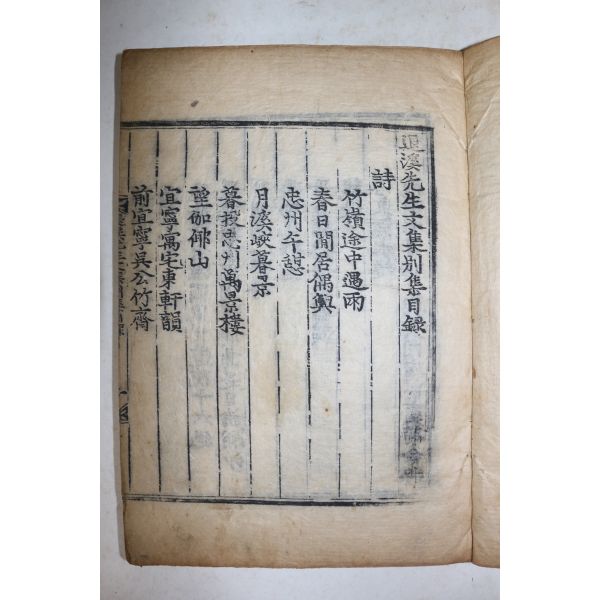 退溪先生文集別集目録
詩
竹嶺途中遇雨
春日閒居偶興
忠州午憩
月溪峽暮景
暮投忠州萬景樓
望伽倻山
宜寧寓宅東軒韻
前宜寧吳公竹齋